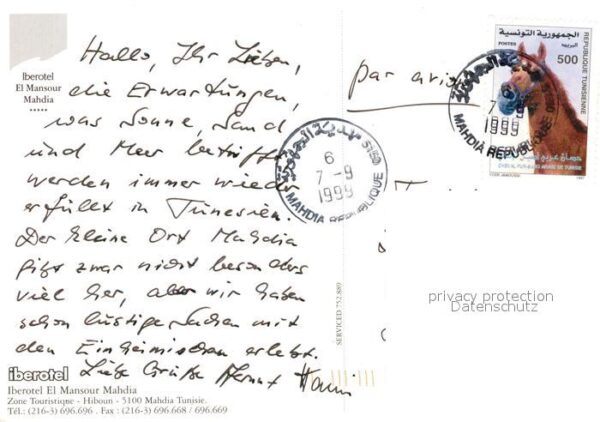 Iberotel
El Mansour
Mahdia
*****
Hallo, Ihr Lieben,
die Erwartungen,
was Sonne, Sand
und Meer betrifft
werden immer wieder
erfüllt in Tunesien.
Der kleine Ort Mahdia
gibt zwar nicht besonders
viel her, aber wir haben
schon lustige Sachen mit
den Einheimischen erlebt.
Liebe Grüße
par avion
الجمهورية التونسية
البريد
POSTES
500
REPUBLIQUE TUNISIENNE
1997
5150
6
7-9
1999
MAHDIA REPUBLIQUE
7
1999
MAHDIA REPUBLIQUE
SERVICED 752.889
privacy protection
Datenschutz
iberotel
Iberotel El Mansour Mahdia
Zone Touristique - Hiboun - 5100 Mahdia Tunisie.
Tél.: (216-3) 696.696 . Fax : (216-3) 696.668 / 696.669